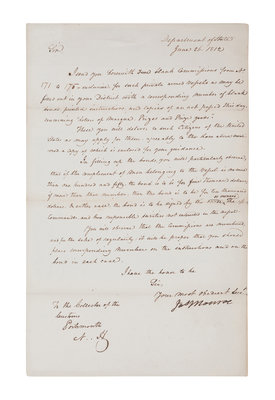 Department of State
June 26. 1812
Sir,
I send you herewith Blank Commissions from No
171 to 175 inclusive for such private armed vessels as may be
fitted out in your District with a corresponding number of blank
bonds printed instructions and copies of an act passed this day
concerning "Letters of Marque, Prizes and Prize goods".
These you will deliver to such Citizens of the United
States as may apply for them, agreeably to the law above
and a copy of which is enclosed for your guidance.
In filling up the bonds, you will particularly observe,
that if the complement of Men belonging to the Vessel is no more
than one hundred and fifty the bond is to be for five thousand dollars
if more than that number then the bond is to be for ten thousand
dollars. In either case the bond is to be signed by the
Commander and two responsible sureties not interested in the vessel.
You will observe that the Commissions are numbered,
and for the sake of regularity it will be proper that you should
place corresponding Numbers on the instructions and on the
bond in each case.
I have the honor to be
Sir,
Your most obedient Servt.
Jas Monroe
To the Collector of the
Customs
Portsmouth
N. H.